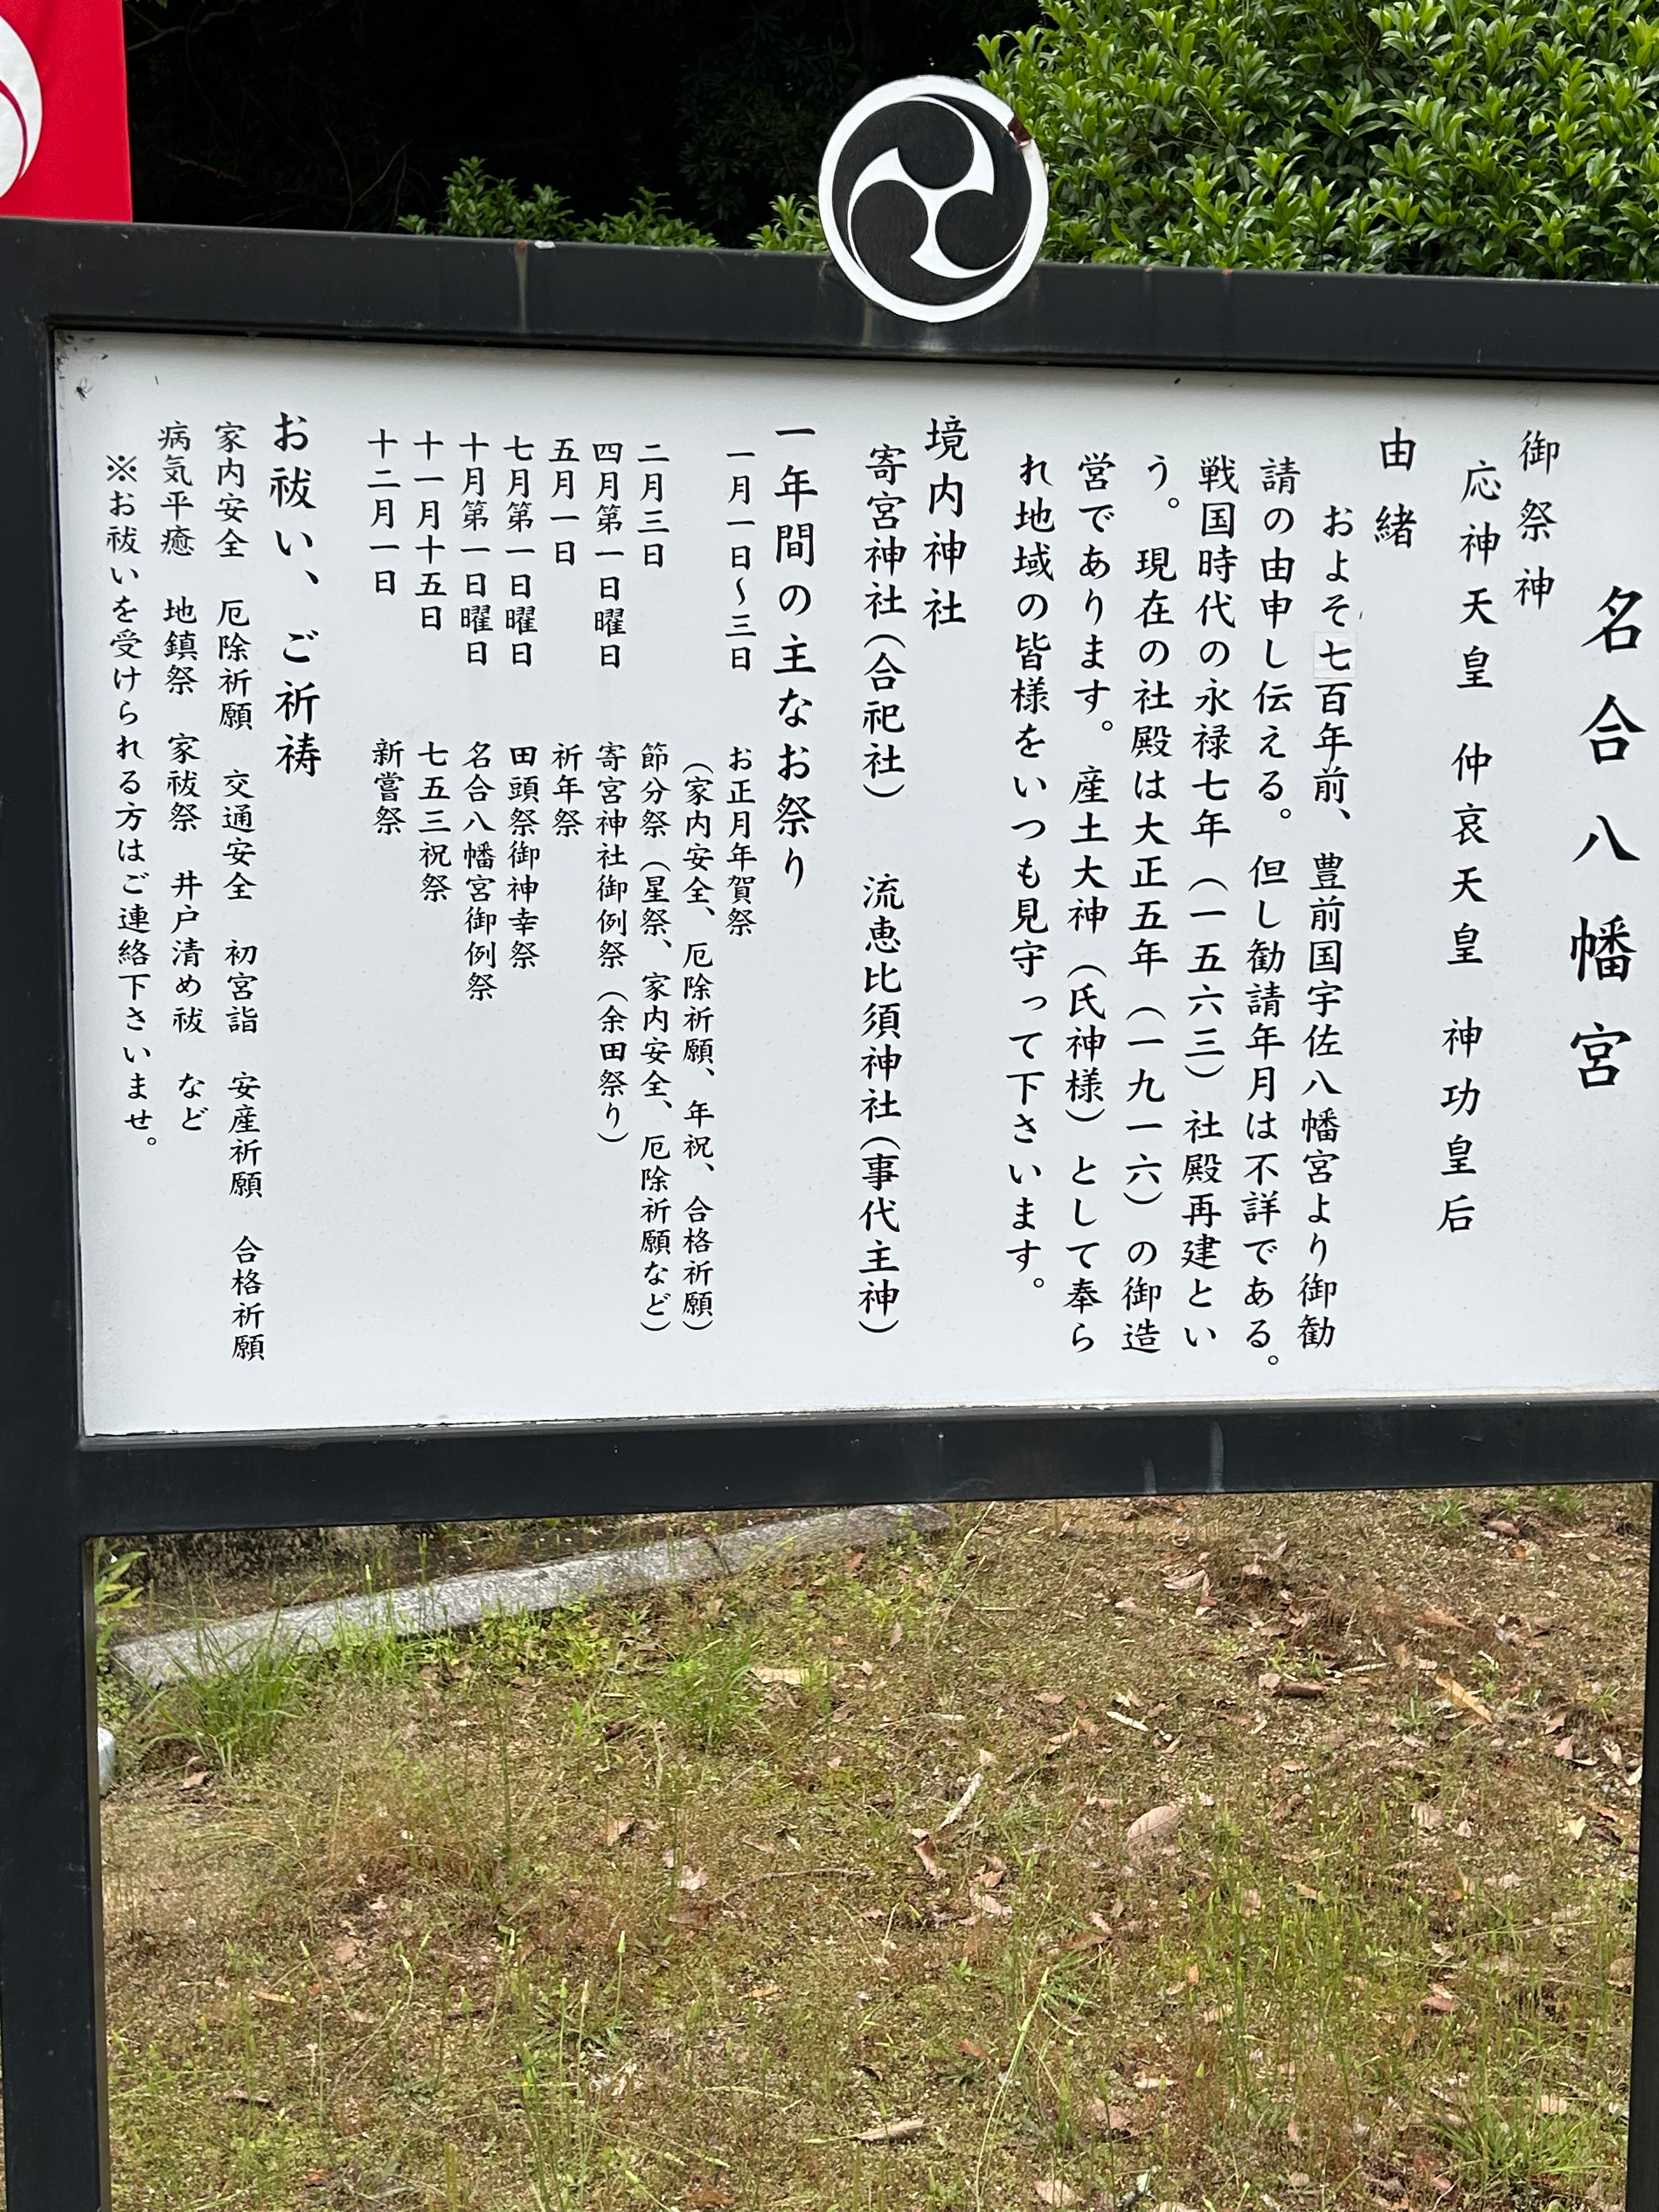 名合八幡宮
御祭神
応神天皇 仲哀天皇 神功皇后
由緒
およそ七百年前、豊前国宇佐八幡宮より御勧
請の由申し伝える。但し勧請年月は不詳である。
戦国時代の永禄七年(一五六三)社殿再建とい
う。現在の社殿は大正五年(一九一六)の御造
営であります。産土大神(氏神様)として奉ら
れ地域の皆様をいつも見守って下さいます。
境内神社
寄宮神社(合祀社) 流恵比須神社(事代主神)
一年間の主なお祭り
一月一日~三日 お正月年賀祭
(家内安全、厄除祈願、年祝、合格祈願)
二月三日 節分祭(星祭、家内安全、厄除祈願など)
四月第一日曜日 寄宮神社御例祭(余田祭り)
五月一日 祈年祭
七月第一日曜日 田頭祭御神幸祭
十月第一日曜日 名合八幡宮御例祭
十一月十五日 七五三祝祭
十二月一日 新嘗祭
お祓い、ご祈祷
家内安全 厄除祈願 交通安全 初宮詣 安産祈願 合格祈願
病気平癒 地鎮祭 家祓祭 井戸清め祓 など
※お祓いを受けられる方はご連絡下さいませ。